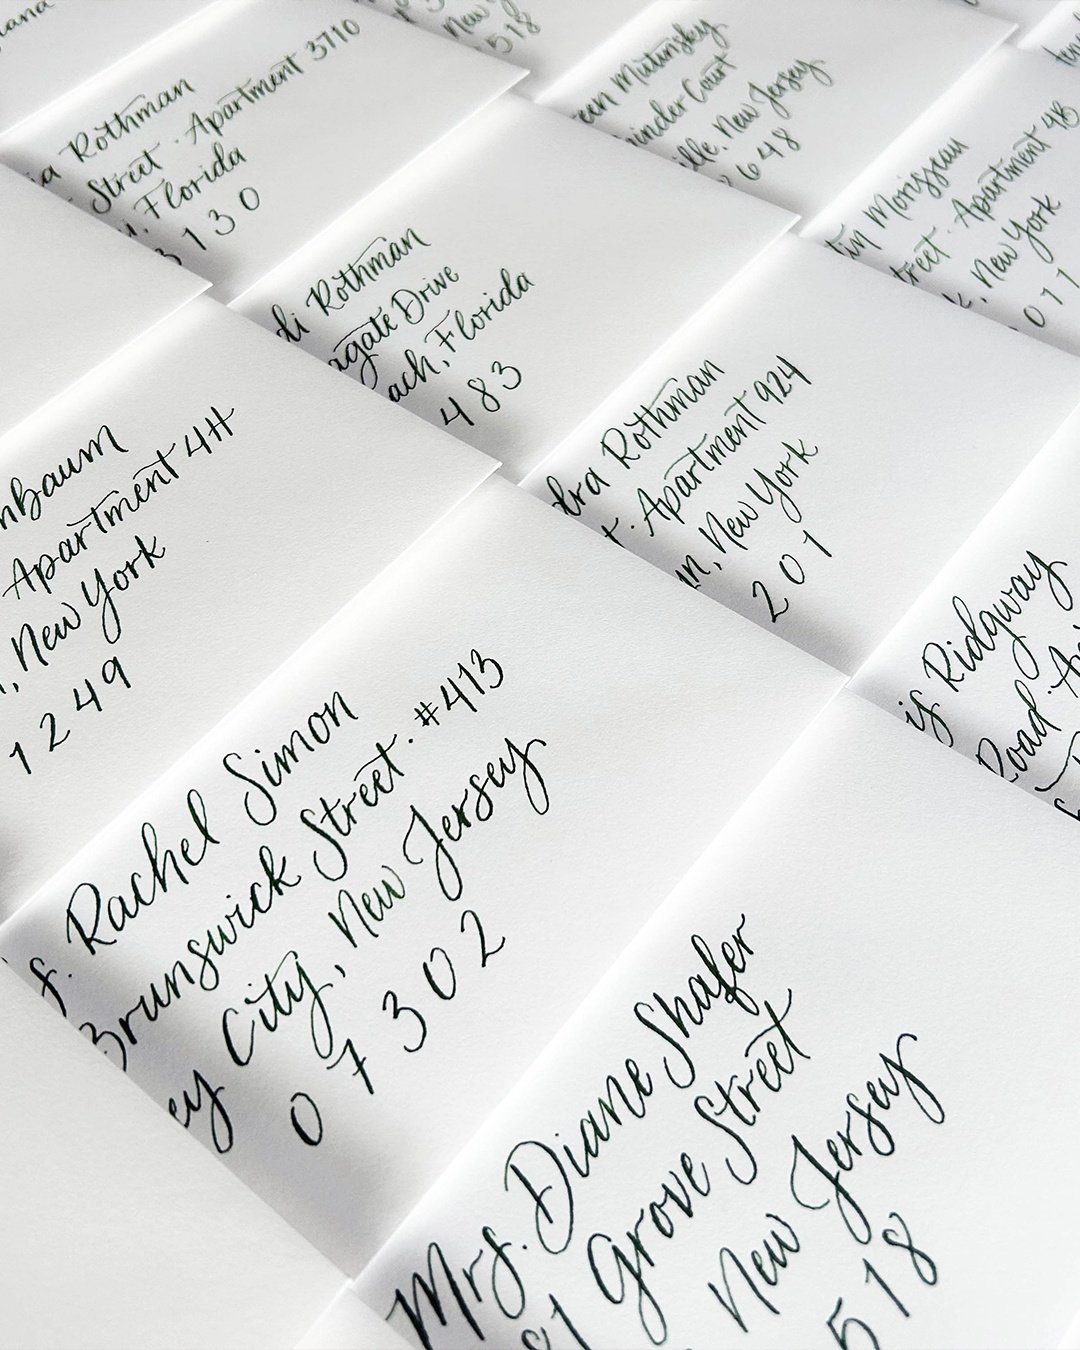 Rothman
Street · Apartment 3710
Florida
1 3 0
New
518
Mutinsky
Court
New Jersey
6 4 8
Morisseau
Apartment 4B
New York
0 1 1
Rothman
Drive
Florida
4 8 3
Apartment 4H
New York
1 2 4 9
Rothman
Apartment 924
New York
2 0 1
Ridgway
Road
Rachel Simon
Brunswick Street · #413
City, New Jersey
0 7 3 0 2
Mrs. Diane Shafer
Grove Street
New Jersey
5 1 8